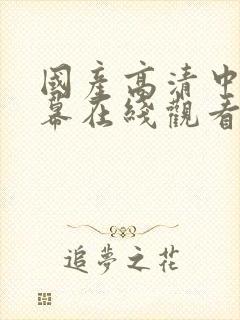 國產高清中
幕在綫觀看
追夢之花